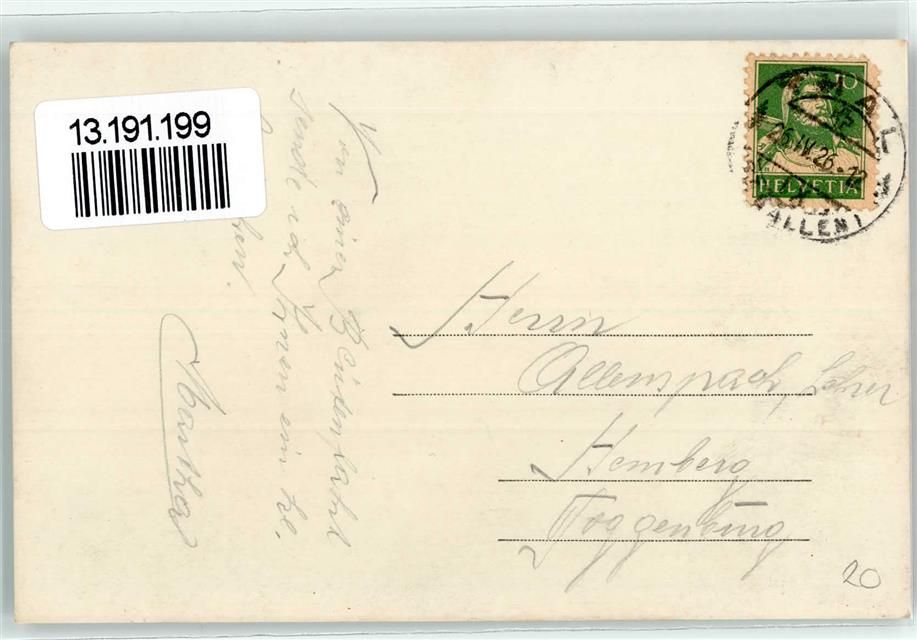 13.191.199
10
HELVETIA
THAL
26.IV.26-12
ALLEN)
Von einer
sende ich Ihnen ein hl.
Martha
Herrn
Allenspach, Lehrer
Hemberg
Toggenburg
20